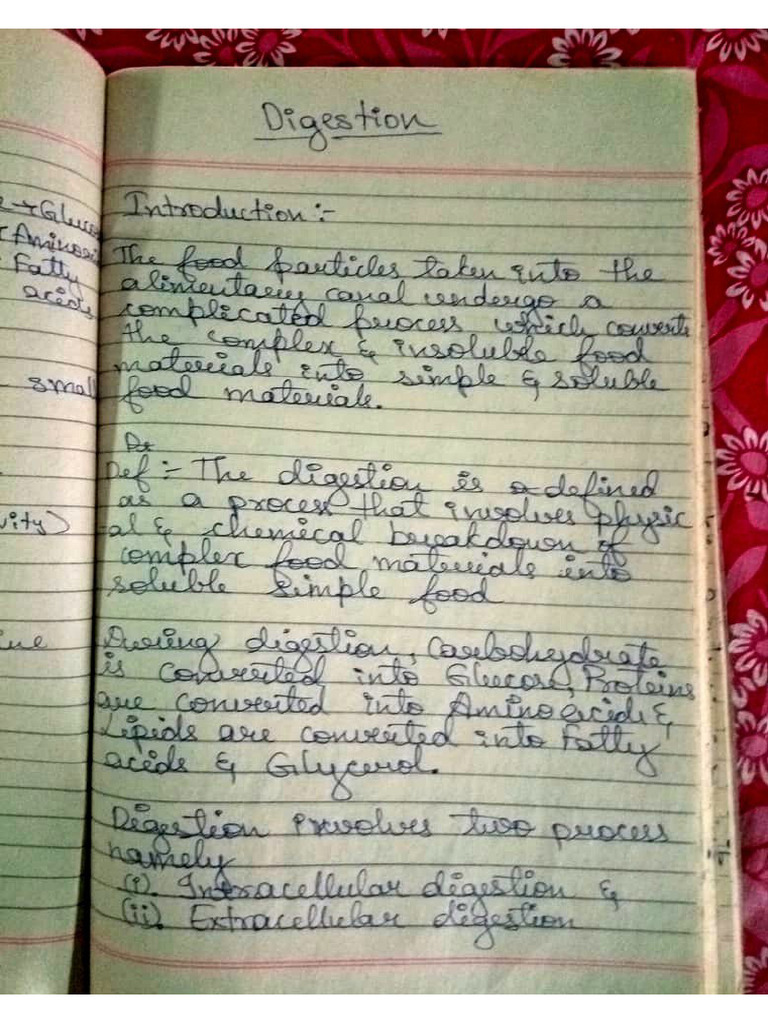 Digestion
Introduction :-
The food particles taken into the
alimentary canal undergo a
complicated process which converts
the complex & insoluble food
materials into simple & soluble
food materials.
De
Def :- The digestion is a defined
as a process that involves physic
al & chemical breakdown of
complex food materials into
soluble simple food
During digestion, Carbohydrate
is converted into Glucose, Proteins
are converted into Amino acids &
Lipids are converted into Fatty
acids & Glycerol.
Digestion involves two process
namely
(i). Intracellular digestion &
(ii). Extracellular digestion
Fatty
acids
small